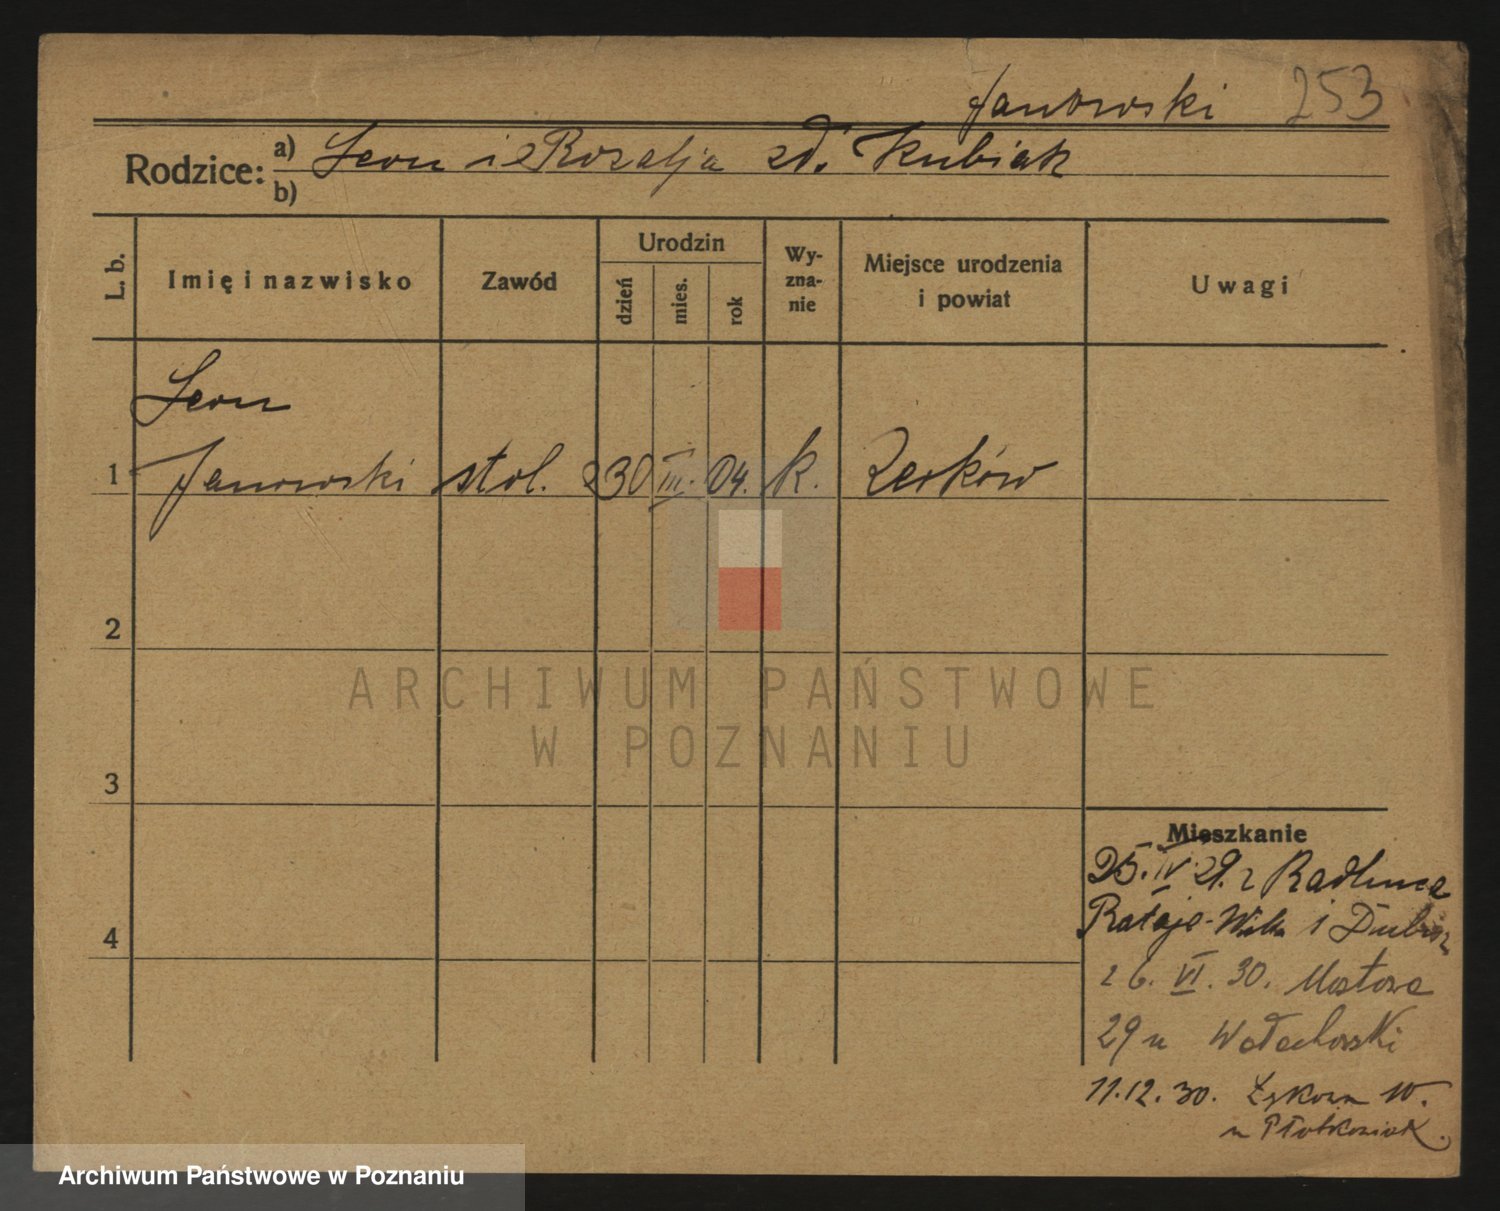 Janowski 253
Rodzice: a) Leon i Rozalja zd. Kubiak
b)
L. b.
Imię i nazwisko
Zawód
Urodzin
dzień
mies.
rok
Wy-
zna-
nie
Miejsce urodzenia
i powiat
Uwagi
Leon
1 Janowski stol. 30 III. 04. k. Żerków
2
ARCHIWUM PAŃSTWOWE
W POZNANIU
3
Mieszkanie
25. IV 29. z
4
Rataje i
26. VI. 30. Mostowa
29 u
11.12.30. 10.
u
Archiwum Państwowe w Poznaniu